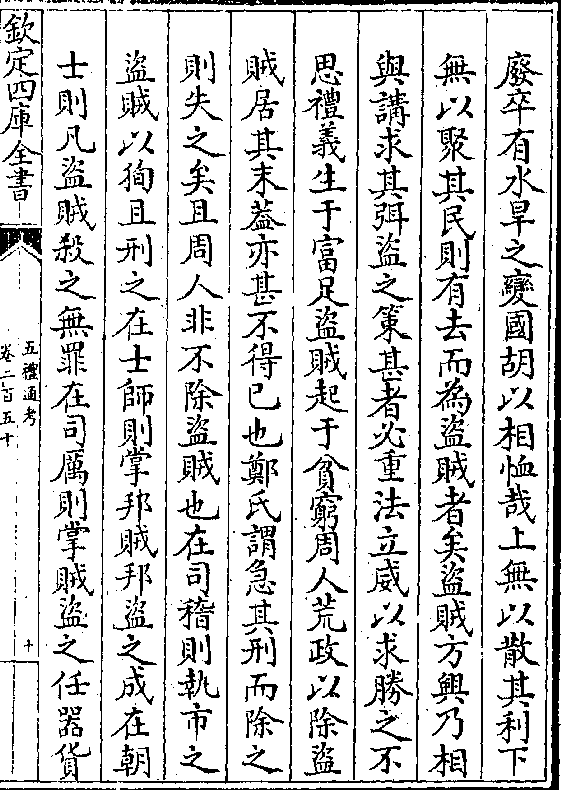 廢卒有水旱之變國胡以相恤哉上無以散其利下
無以聚其民則有去而為盜賊者矣盜賊方興乃相
與講求其弭盜之策甚者必重法立威以求勝之不
思禮義生于富足盜賊起于貧窮周人荒政以除盜
賊居其末葢亦甚不得已也鄭氏謂急其刑而除之
則失之矣且周人非不除盜賊也在司稽則執市之
盜賊以徇且刑之在士師則掌邦賊邦盜之成在朝
士則凡盜賊殺之無罪在司厲則掌賊盜之任器貨
欽定四庫全書
五禮通考
卷二百五十
十